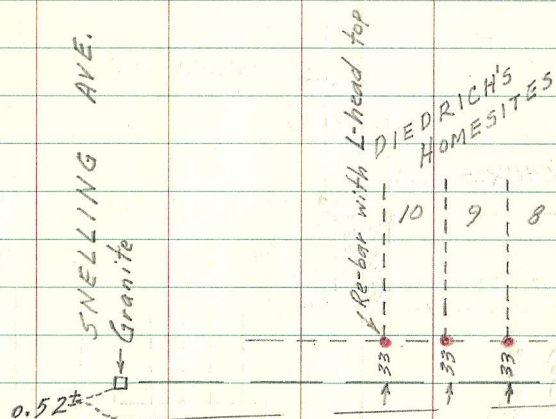 SNELLING AVE.
Granite
0.52±
Re-bar with L-head top
DIEDRICH'S
HOMESITES
10 9 8
33 33 33